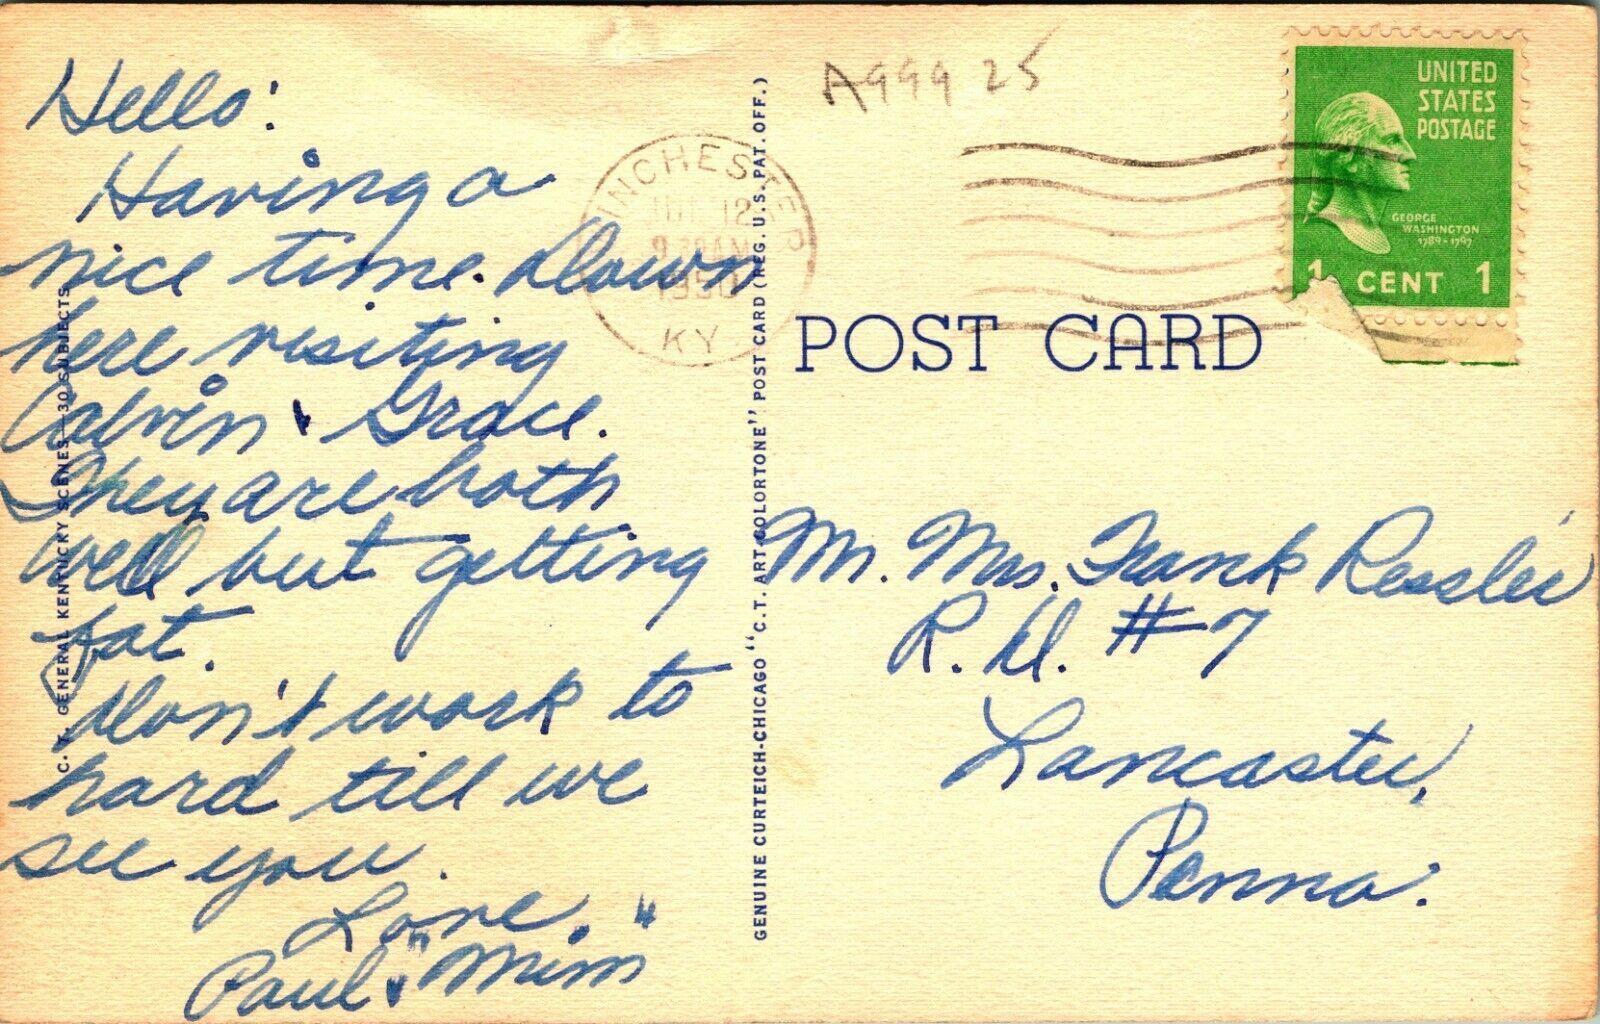 Hello:
Having a
nice time. Down
here visiting
Calvin & Grace.
They are both
well but getting
fat.
Don't work to
hard till we
see you.
Love.
Paul & "Mim"
C. T. GENERAL KENTUCKY SCENES—30 SUBJECTS
A999 25
INCHESTER
KY
GENUINE CURTEICH-CHICAGO "C. T. ART-COLORTONE" POST CARD (REG. U. S. PAT. OFF.)
UNITED
STATES
POSTAGE
GEORGE
WASHINGTON
1789-1797
1 CENT 1
POST CARD
Mr. Mrs. Frank Ressler
R. D. #7
Lancaster,
Penna.